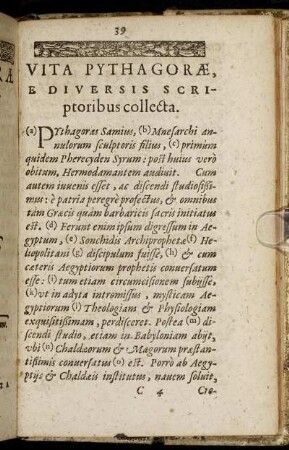 39
VITA PYTHAGORÆ,
E DIVERSIS SCRI-
ptoribus collecta.
(a) PYthagoras Samius, (b) Mnesarchi an-
nulorum sculptoris filius, (c) primùm
quidem Pherecyden Syrum: post huius verò
obitum, Hermodamantem audiuit. Cum
autem iuuenis esset, ac discendi studiosißi-
mus: è patria peregrè profectus, & omnibus
tam Græcis quàm barbaricis sacris initiatus
est. (d) Ferunt enim ipsum digressum in Ae-
gyptum, (e) Sonchidis Archiprophetæ (f) He-
liopolitani (g) discipulum fuisse, (h) & cum
cæteris Aegyptiorum prophetis conuersatum
esse: (i) tum etiam circumcisionem subijsse,
(k) vt in adyta intromissus, mysticam Ae-
gyptiorum (l) Theologiam & Physiologiam
exquisitißimam, perdisceret. Postea (m) di-
scendi studio, etiam in Babyloniam abijt,
vbi (n) Chaldæorum & Magorum præstan-
tißimis conuersatus (o) est. Porrò ab Aegy-
ptijs & Chaldæis institutus, nauem soluit,
C 4 Cre-